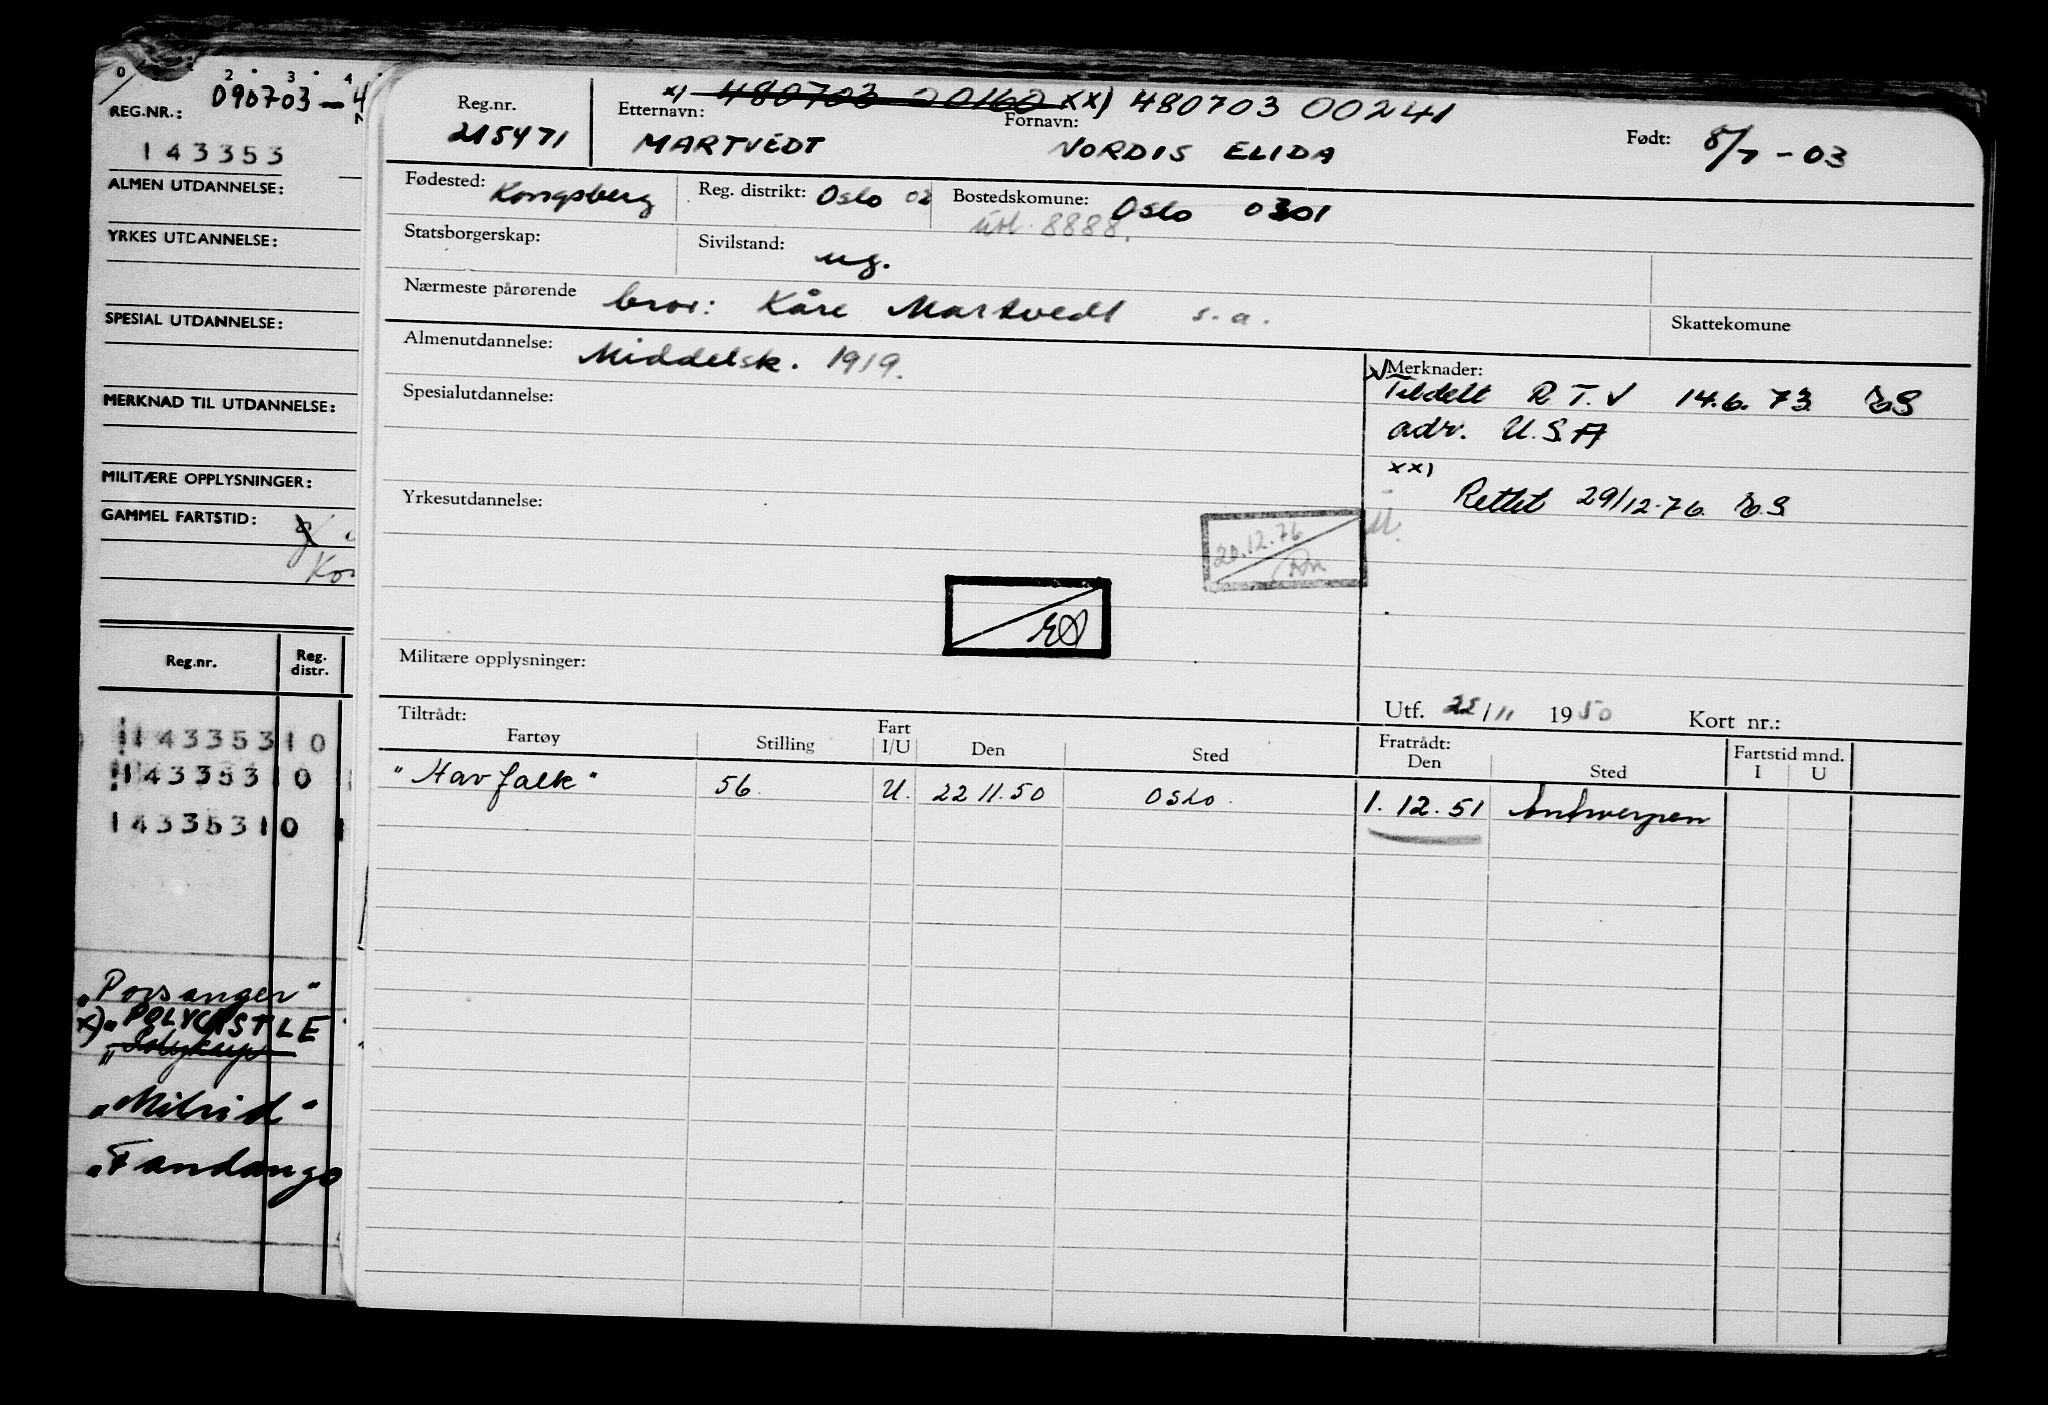 0 2 3 4
REG.NR.: 090703-4
143353
ALMEN UTDANNELSE:
YRKES UTDANNELSE:
SPESIAL UTDANNELSE:
MERKNAD TIL UTDANNELSE:
MILITÆRE OPPLYSNINGER:
GAMMEL FARTSTID:
Reg.nr. Reg. distr.
143353 10
143353 10
143353 10
"Porsanger"
x) "POLYCASTLE
"Mitrid"
"Fandango
x) 480703 00160 xx) 480703 00241
Reg.nr. Etternavn: Fornavn: Født: 8/7-03
215471 MARTVEDT NORDIS ELIDA
Fødested: Kongsberg Reg. distrikt: Oslo 02 Bostedskomune: Oslo 0301
utl. 8888.
Statsborgerskap: Sivilstand: ug.
Nærmeste pårørende bror: Kåre Martvedt s.a.
Skattekomune
Almenutdannelse: Middelsk. 1919.
Merknader:
x) Tildelt R T.V 14.6.73
adr. U.S.A
xx)
Rettet 29/12-76.
Spesialutdannelse:
Yrkesutdannelse:
20.12.76
Militære opplysninger:
Utf. 22/11 1950 Kort nr.:
Tiltrådt: Fratrådt: Fartstid mnd.
Fartøy Stilling Fart I/U Den Sted Den Sted I U
"Havfalk" 56. U. 22 11.50 Oslo. 1.12.51 Antwerpen